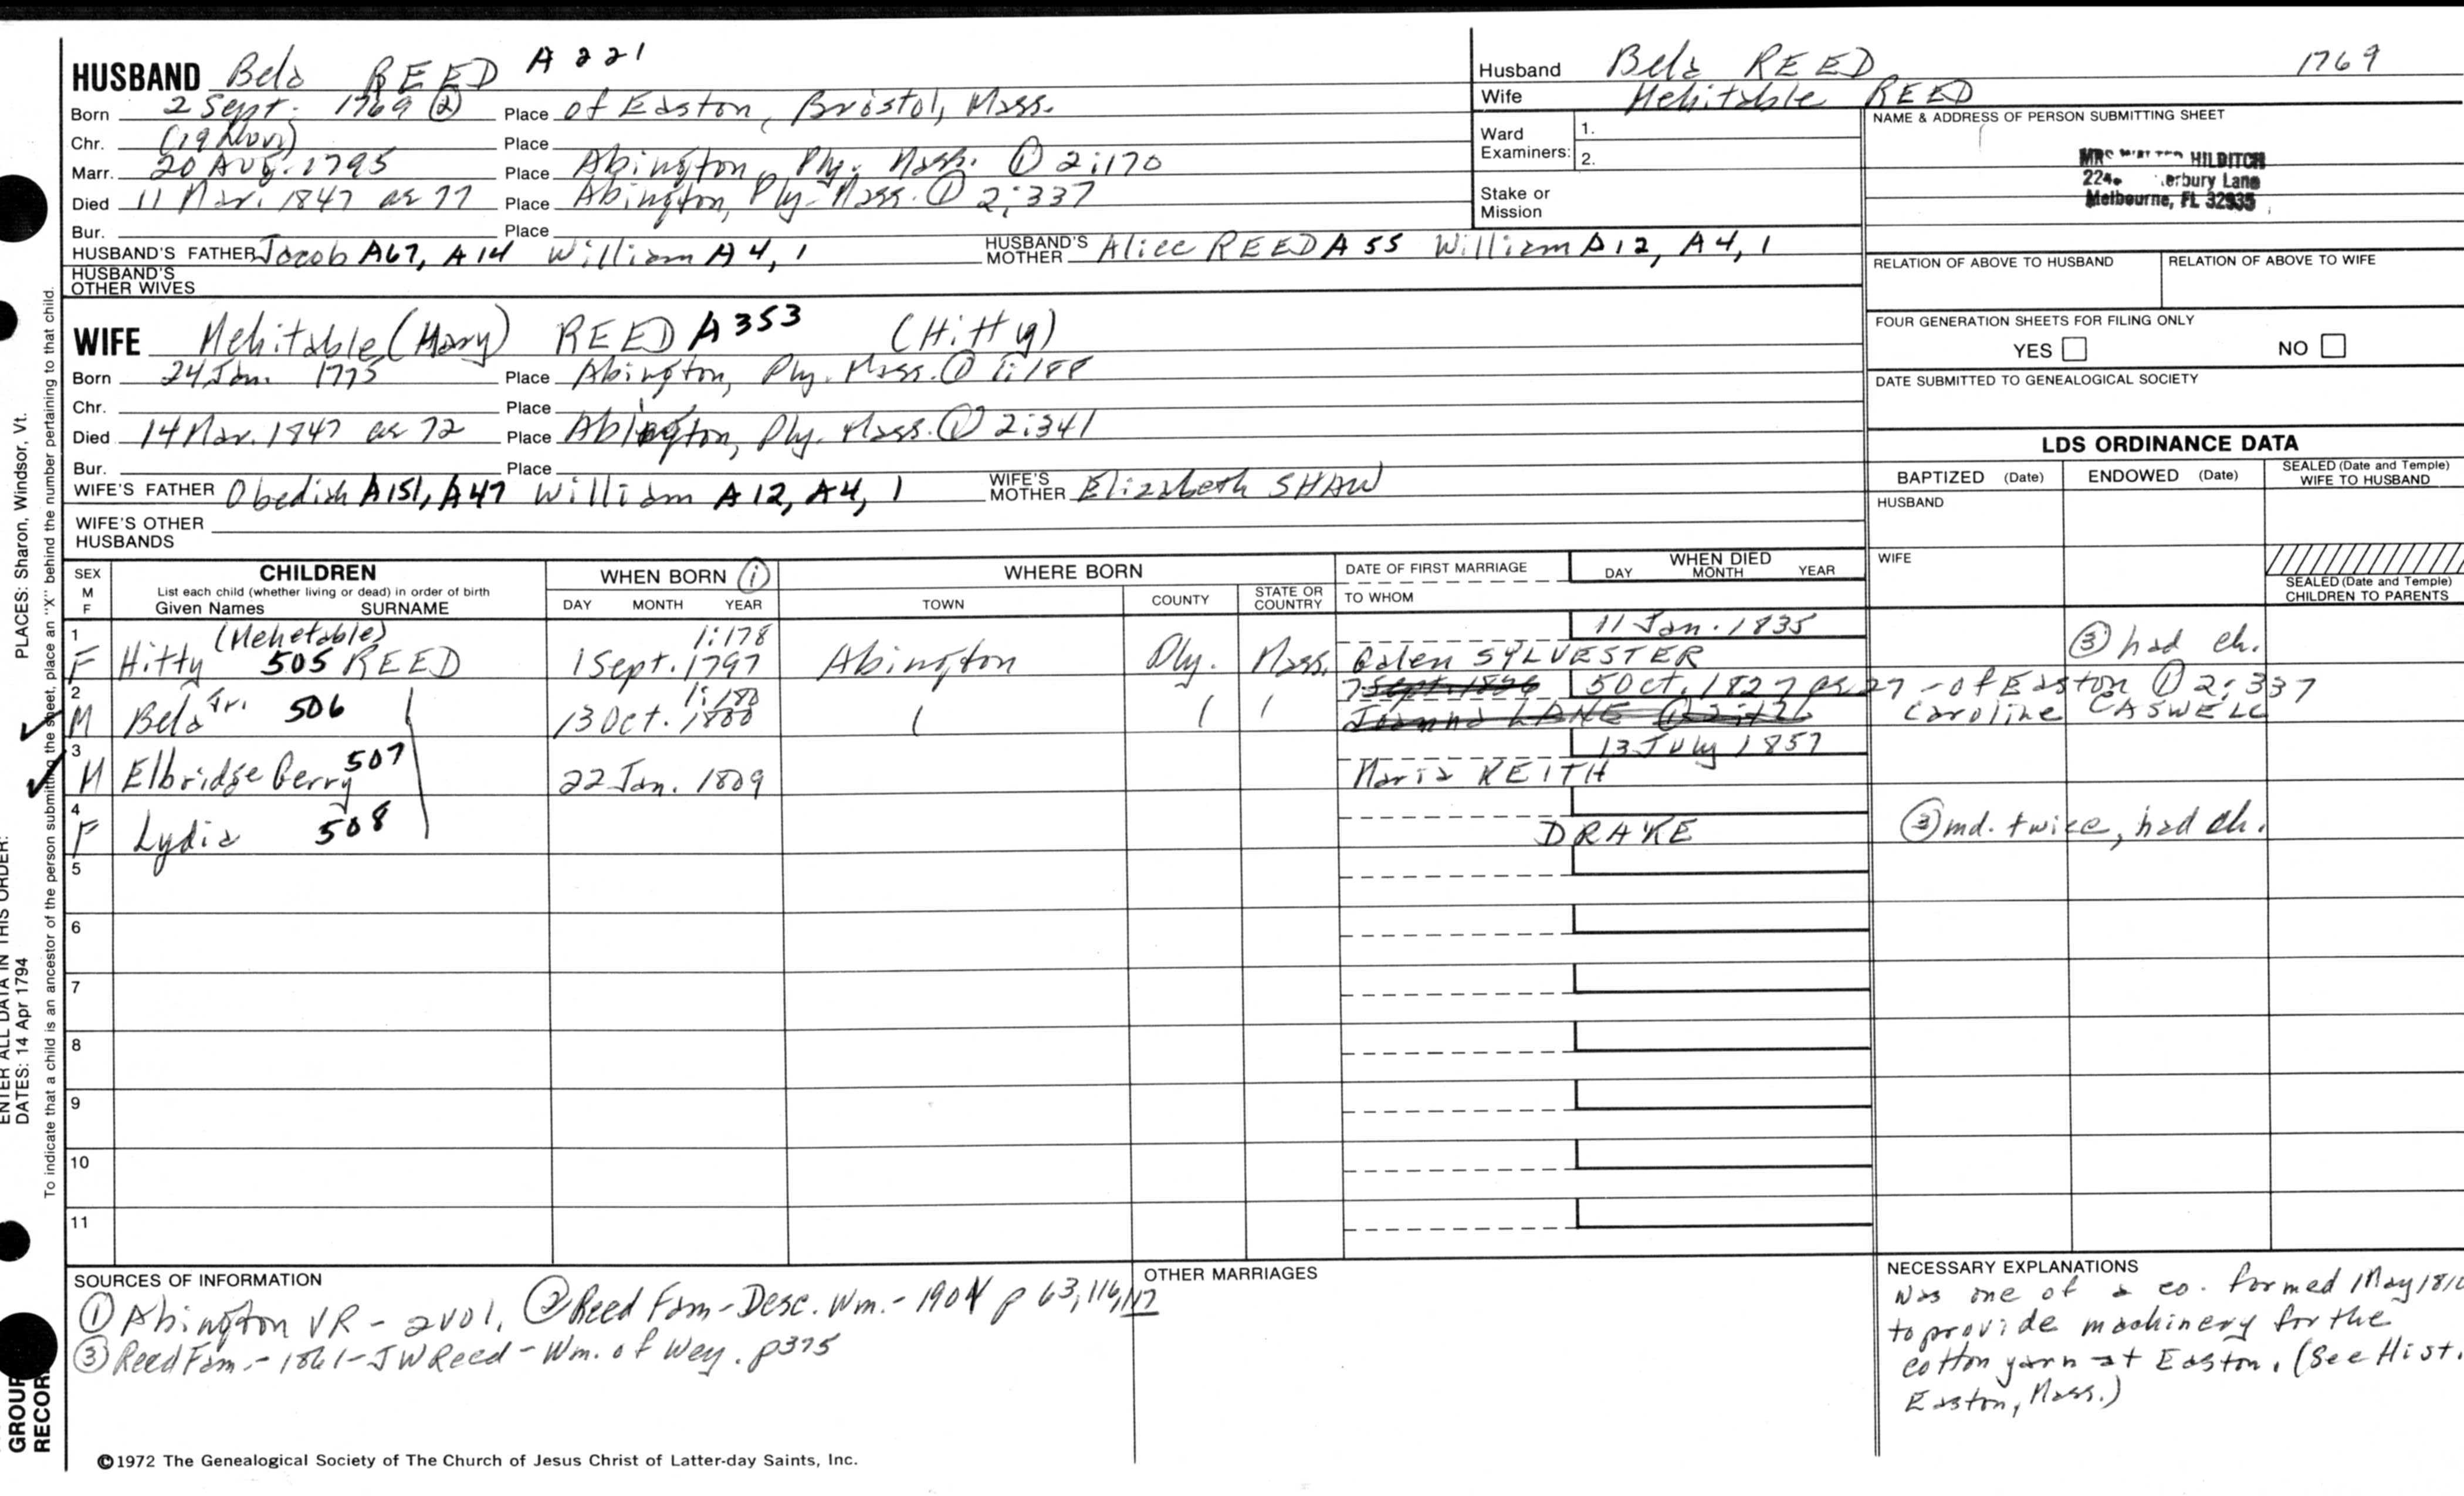 HUSBAND Bela REED A 221
Born 2 Sept. 1769 ② Place of Easton, Bristol, Mass.
Chr. (19 Nov.) Place
Marr. 20 Aug. 1795 Place Abington, Ply. Mass. ① 2:170
Died 11 Mar. 1847 ae 77 Place Abington, Ply. Mass. ① 2:337
Bur. Place
HUSBAND'S FATHER Jacob A67, A14 William A4, 1 HUSBAND'S MOTHER Alice REED A 55 William A12, A4, 1
HUSBAND'S OTHER WIVES
WIFE Mehitable (Mary) REED A353 (Hitty)
Born 24 Jan. 1775 Place Abington, Ply. Mass. ① 1:188
Chr. Place
Died 14 Mar. 1847 ae 72 Place Abington, Ply. Mass. ① 2:341
Bur. Place
WIFE'S FATHER Obediah A151, A47 William A12, A4, 1 WIFE'S MOTHER Elizabeth SHAW
WIFE'S OTHER HUSBANDS
Husband Bela REED 1769
Wife Mehitable REED
Ward Examiners: 1.
2.
Stake or Mission
NAME & ADDRESS OF PERSON SUBMITTING SHEET
MRS HILDITCH
Lane
Melbourne, FL 32935
RELATION OF ABOVE TO HUSBAND RELATION OF ABOVE TO WIFE
FOUR GENERATION SHEETS FOR FILING ONLY
YES NO
DATE SUBMITTED TO GENEALOGICAL SOCIETY
LDS ORDINANCE DATA
BAPTIZED (Date) ENDOWED (Date) SEALED (Date and Temple) WIFE TO HUSBAND
HUSBAND
WIFE
SEALED (Date and Temple) CHILDREN TO PARENTS
SEX M F CHILDREN List each child (whether living or dead) in order of birth Given Names SURNAME
WHEN BORN ① DAY MONTH YEAR
WHERE BORN TOWN COUNTY STATE OR COUNTRY
DATE OF FIRST MARRIAGE TO WHOM
WHEN DIED DAY MONTH YEAR
1 (Mehetable) 1:178 11 Jan. 1835
F Hitty 505 REED 1 Sept. 1797 Abington Ply. Mass. Galen SYLVESTER ③ had ch.
2 1:180 7 Sept. 1826 5 Oct. 1827 ae 27 - of Easton ① 2:337
M Bela Jr. 506 13 Oct. 1800 Joanna LANE Caroline CASWELL
3 13 July 1857
M Elbridge Gerry 507 22 Jan. 1809 Maria KEITH
4
F Lydia 508 DRAKE ③ md. twice, had ch.
5
6
7
8
9
10
11
SOURCES OF INFORMATION
① Abington VR - 2 vol. ② Reed Fam - Desc. Wm. - 1904 p 63, 116, 117
③ Reed Fam. - 1861 - JW Reed - Wm. of Wey. p375
OTHER MARRIAGES
NECESSARY EXPLANATIONS
Was one of a co. formed 1 May
to provide machinery for the
cotton yarn at Easton. (See Hist.
Easton, Mass.)
©1972 The Genealogical Society of The Church of Jesus Christ of Latter-day Saints, Inc.
ENTER ALL DATA IN THIS ORDER:
DATES: 14 Apr 1794 PLACES: Sharon, Windsor, Vt.
To indicate that a child is an ancestor of the person submitting the sheet, place an "X" behind the number pertaining to that child.
GROUP
RECORD